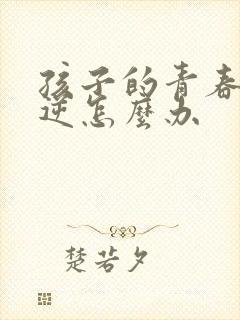 孩子的青春
逆怎麼办
楚若夕